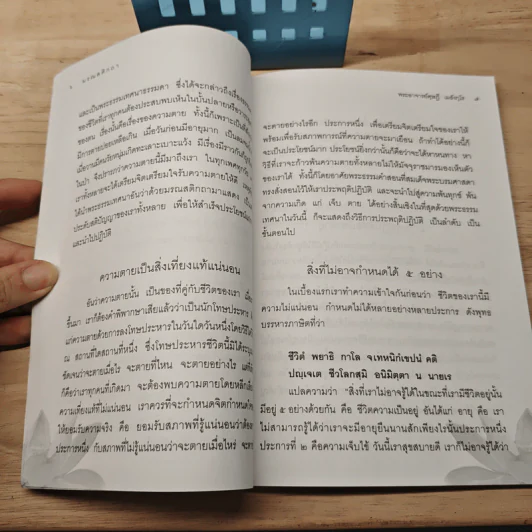 ๖ มรณสติกถา
และเป็นพระธรรมเทศนาธรรมดา ซึ่งได้จะกล่าวถึงเรื่อง
ของชีวิตที่เราทุกคนต้องประสบพบเห็นในบั้นปลายหรือ
ของตน เรื่องนั้นคือเรื่องของความตาย ทั้งนี้ก็เพราะเป็น
มีการตายบ่อยเหลือเกิน เมื่อวันก่อนมีอายุมาก เป็น
เราทั้งหลายจะได้เตรียมจิตเตรียมใจรับความตายให้ดี
ได้นำพระธรรมเทศนาอันว่าด้วยมรณสติกถามาแสดง
ประดับสติปัญญาของเราทั้งหลาย เพื่อให้สำเร็จประโยชน์
และนำไปปฏิบัติ
ความตายเป็นสิ่งเที่ยงแท้แน่นอน
อันว่าความตายนั้น เป็นของที่คู่กับชีวิตของเรา เมื่อ
ขึ้นมา เราก็ต้องคำพิพากษาเสียแล้วว่าเป็นนักโทษประหาร
แก่ความตายด้วยการลงโทษประหารในวันใดวันหนึ่งโดยวิธีใด
ณ สถานที่ใดสถานที่หนึ่ง ซึ่งโทษประหารชีวิตนี้มิได้ระบุ
ชัดเจนว่าจะตายเมื่อไร จะตายที่ไหน จะตายอย่างไร แต่ที่
ก็คือว่าเราทุกคนที่เกิดมา จะต้องพบความตายโดยหลีกเลี่ยง
ความเที่ยงแท้ที่ไม่แน่นอน เราควรที่จะกำหนดจิตกำหนด
ให้ยอมรับความจริง คือ ยอมรับสภาพที่รู้แน่นอนว่าต้อง
ประการหนึ่ง กับสภาพที่ไม่รู้แน่นอนว่าจะตายเมื่อไหร่ จะตาย
พระอาจารย์ศุภฤกษ์ ๗
จะตายอย่างไรอีก ประการหนึ่ง เพื่อเตรียมจิตเตรียมใจของเราให้
พร้อมเพื่อรับสภาพการณ์ที่ความตายจะมาเยือน ถ้าทำได้อย่างนี้ก็
จะเป็นประโยชน์มาก ประโยชน์ยิ่งกว่านั้นก็คือว่าจะได้หาหนทาง หา
วิธีที่เราจะก้าวพ้นความตายทั้งหลายไม่ให้มัจจุราชมารมองเห็นตัว
ของเราได้ ทั้งนี้ก็โดยอาศัยพระธรรมคำสอนที่สมเด็จพระบรมศาสดา
ทรงสั่งสอนไว้ให้เราประพฤติปฏิบัติ และจะนำไปสู่ความพ้นทุกข์ พ้น
จากความเกิด แก่ เจ็บ ตาย ได้อย่างสิ้นเชิงในที่สุดด้วยพระธรรม
เทศนาในวันนี้ ก็จะแสดงถึงวิธีการประพฤติปฏิบัติ เป็นลำดับ เป็น
ขั้นตอนไป
สิ่งที่ไม่อาจกำหนดได้ ๕ อย่าง
ในเบื้องแรกเราทำความเข้าใจกันก่อนว่า ชีวิตของเรานี้มี
ความไม่แน่นอน กำหนดไม่ได้หลายอย่างหลายประการ ดังพุทธ
บรรหารภาษิตที่ว่า
ชีวิตํ พยาธิ กาโล จ เทหนิกฺเขปนํ คติ
ปญฺเจเต ชีวโลกสฺมิ อนิมิตฺตา น นายเร
แปลความว่า “สิ่งที่เราไม่อาจรู้ได้ในขณะที่เรามีชีวิตอยู่นั้น
มีอยู่ ๕ อย่างด้วยกัน คือ ชีวิตความเป็นอยู่ อันได้แก่ อายุ คือ เรา
ไม่สามารถรู้ได้ว่าเราจะมีอายุยืนนานสักเพียงไรนั้นประการหนึ่ง
ประการที่ ๒ คือความเจ็บไข้ วันนี้เราสุขสบายดี เราก็ไม่อาจรู้ได้ว่า